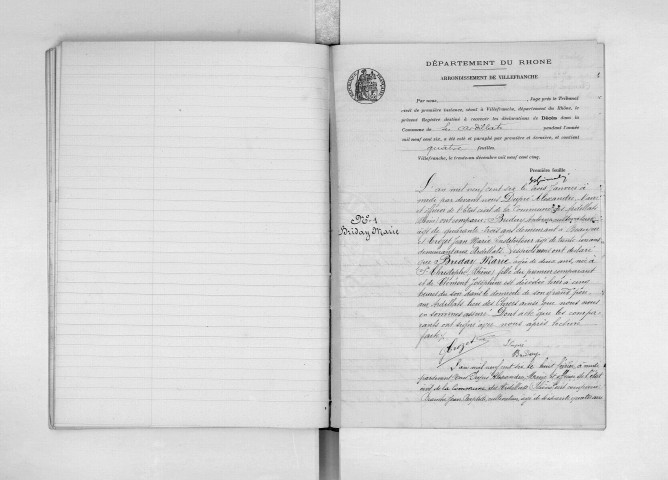 DÉPARTEMENT DU RHONE
ARRONDISSEMENT DE VILLEFRANCHE
Par nous, , Juge près le Tribunal
civil de première instance, séant à Villefranche, département du Rhône, le
présent Registre destiné à recevoir les déclarations de Décès dans la
Commune de Les Ardillats pendant l'année
mil neuf cent six, a été coté et paraphé par première et dernière, et contient
quatre feuilles.
Villefranche, le trente-un décembre mil neuf cent cinq.
Première feuille
N° 1
Briday Marie
L'an mil neuf cent six le janvier à
midi par devant nous Dupré Alexandre, Maire
et officier de l'état civil de la Commune des Ardillats
Rhône ont comparu: Briday cultivateur
âgé de quarante trois ans demeurant à
et Crozet Jean Marie âgé de trente ans
demeurant aux Ardillats lesquels nous ont déclaré
que Briday Marie âgée de deux ans, née à
St Christophe, Rhône, fille du premier comparant
et de Clément Joséphine est décédée hier à cinq
heures du soir dans le domicile de son grand père
aux Ardillats lieu des ainsi que nous nous
en sommes assuré. Dont acte que les compa-
rants ont signé avec nous après lecture
faite.
Crozet
Dupré
Briday
L'an mil neuf cent six le huit février, à midi
par devant nous Dupré Alexandre, Maire et officier de l'état
civil de la Commune des Ardillats Rhône ont comparu
Jean cultivateur, âgé de soixante quatre ans